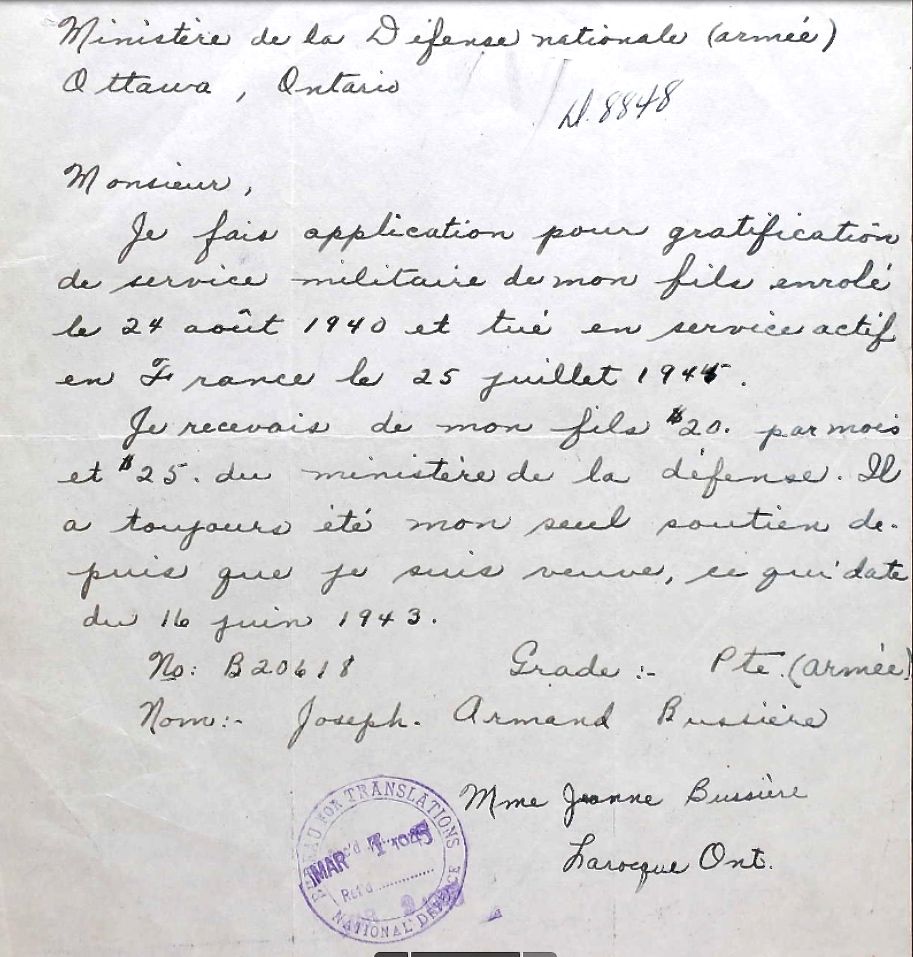 Ministère de la Défense nationale (armée)
Ottawa, Ontario
8848
Monsieur,
Je fais application pour gratification
de service militaire de mon fils enrolé
le 24 août 1940 et tué en service actif
en France le 25 juillet 1944.
Je recevais de mon fils $20. par mois
et $25. du ministère de la défense. Il
a toujours été mon seul soutien de-
puis que je suis veuve, ce qui date
du 16 juin 1943.
No: B20618 Grade:- Pte. (armée)
Nom:- Joseph. Armand Bussière
Mme Jeanne Bussière
Larocque Ont.
BUREAU FOR TRANSLATIONS
MAR 1945
Ret'd
NATIONAL DEFENCE